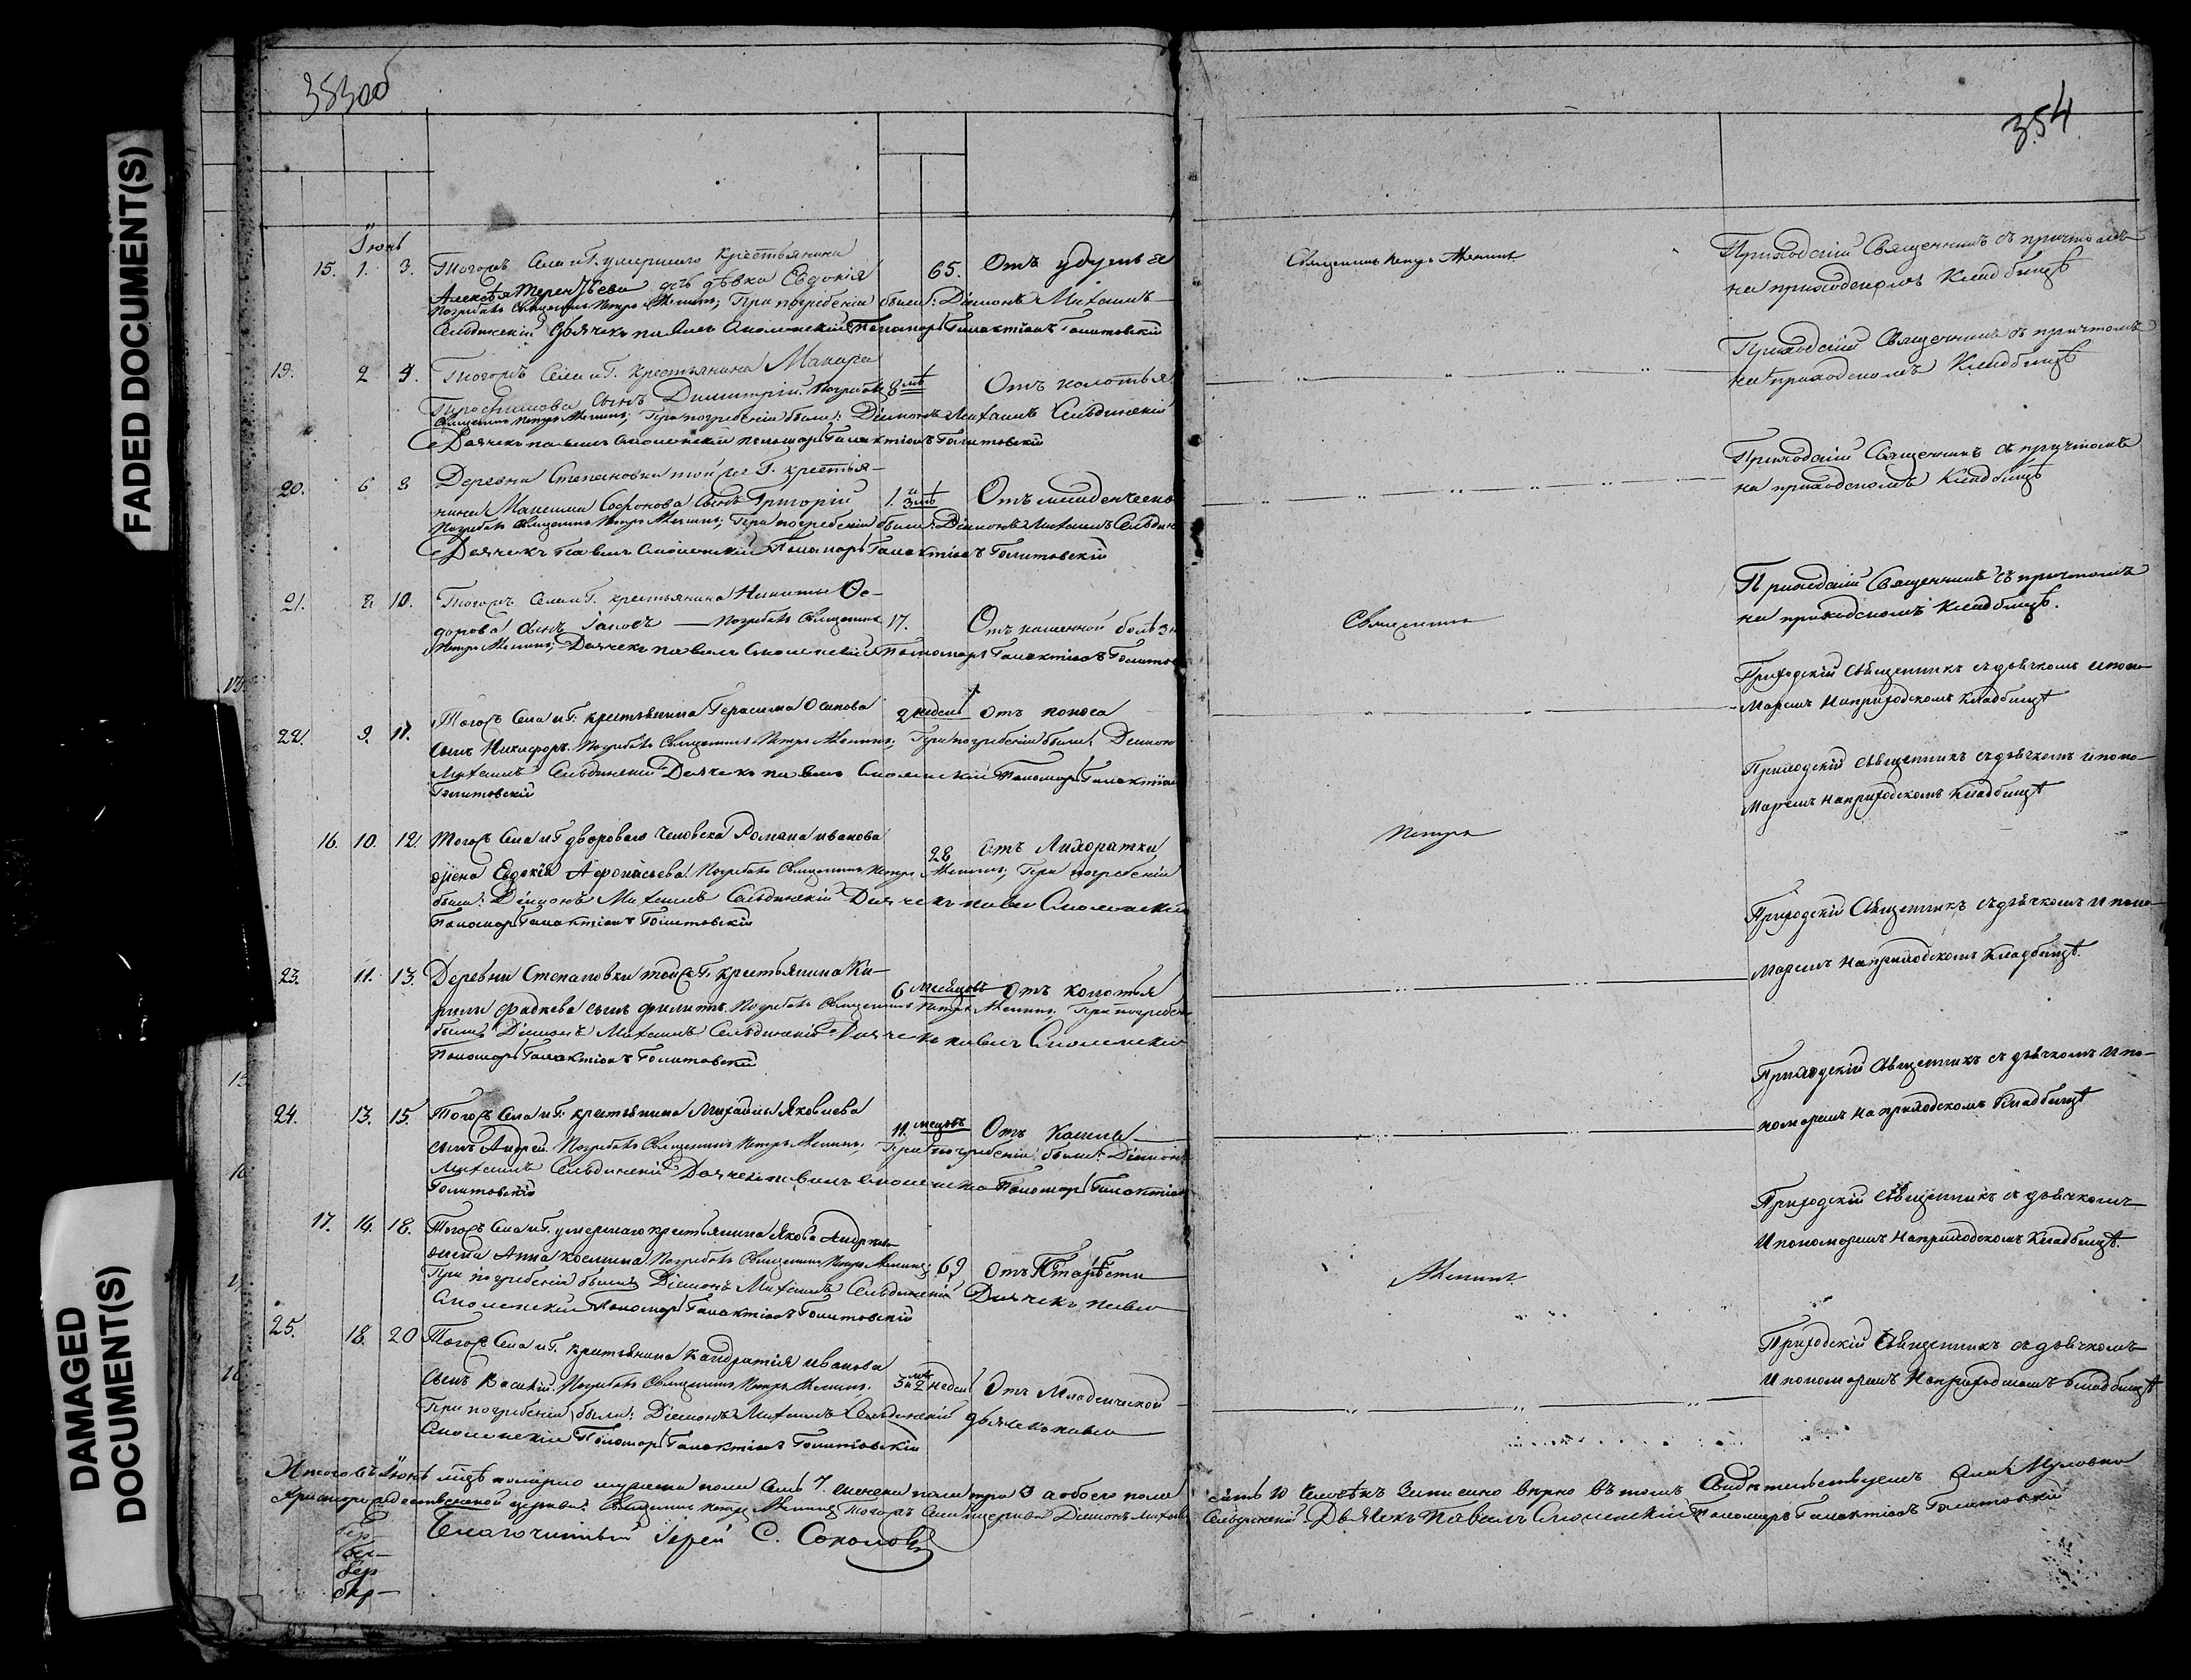 FADED DOCUMENT(S)
DAMAGED
DOCUMENT(S)
353 об
354
Іюнь
15. 1. 3. Тогожъ Села и Г. умершаго крестьянина
Алексѣя Терентьева дочь дѣвка Евдокія 65. Отъ удушья
Погребалъ Священникъ Петръ; При погребеніи были: Діаконъ Михаилъ
Сельдинскій Дьячекъ Павелъ Смоленскій Пономарь Галактіонъ Голитовскій
Священникъ Петръ
Приходскій Священникъ съ причтомъ
на приходскомъ Кладбищѣ
19. 2 4. Тогожъ Села и Г. крестьянина Макара
Трофимова Сынъ Димитрій. Погребалъ 8 лѣт Отъ колотья
Священникъ Петръ; При погребеніи были: Діаконъ Михаилъ Сельдинскій
Дьячекъ Павелъ Смоленскій Пономарь Галактіонъ Голитовскій
Приходскій Священникъ съ причтомъ
на приходскомъ Кладбищѣ
20. 6 8 Деревни Степановки той же Г. крестья-
нина Максима Софронова Сынъ Григорій 1. и 3 Отъ младенческо
Погребалъ Священникъ Петръ; При погребеніи были: Діаконъ Михаилъ Сельдин
Дьячекъ Павелъ Смоленскій Пономарь Галактіонъ Голитовскій
Приходскій Священникъ съ причтомъ
на приходскомъ Кладбищѣ
21. 8 10. Тогожъ Села и Г. крестьянина Никиты Ѳе-
дорова Сынъ Іаковъ — Погребалъ Священникъ 17. Отъ каменной болѣзн
Петръ; Дьячекъ Павелъ Смоленскій Пономарь Галактіонъ Голитов
Священникъ
Приходскій Священникъ съ причтомъ
на приходскомъ Кладбищѣ.
22. 9. 11. Тогожъ Села и Г. крестьянина Герасима Осипова 2 недели Отъ поноса
Сынъ Никифоръ. Погребалъ Священникъ Петръ; При погребеніи были: Діаконъ
Михаилъ Сельдинскій Дьячекъ Павелъ Смоленскій Пономарь Галактіон
Голитовскій
Приходскій Священникъ съ дьячкомъ и поно-
маремъ На приходскомъ Кладбищѣ
16. 10. 12. Тогожъ Села и Г. двороваго человека Романа Иванова
жена Евдокія Афонасьева. Погребалъ Священникъ Петръ 28 Отъ Лихоратки
При погребеніи
были: Діаконъ Михаилъ Сельдинскій Дьячекъ Павел Смоленскій
Пономарь Галактіонъ Голитовскій
Петръ
Приходскій Священникъ съ дьячкомъ и поно-
маремъ на приходскомъ Кладбищѣ
23. 11. 13. Деревни Степановки той же Г. крестьянина Ки-
рилы Фадеева сынъ Филипъ. Погребалъ Священникъ Петръ 6 месяцовъ Отъ колотья
При погребен
были: Діаконъ Михаилъ Сельдинскій Дьячекъ Павелъ Смоленскій
Пономарь Галактіонъ Голитовскій
Приходскій Священникъ съ дьячкомъ и поно-
маремъ на приходскомъ Кладбищѣ.
24. 13. 15. Тогожъ Села и Г. крестьянина Михайлы Яковлева
сынъ Андрей. Погребалъ Священникъ Петръ; 11. месцовъ Отъ Кашля
При погребеніи были: Діаконъ
Михаилъ Сельдинскій Дьячекъ Павелъ Смоленска Пономарь Галактіон
Голитовскій
Приходскій Священникъ съ дьячкомъ и по-
номаремъ на приходскомъ Кладбищѣ
17. 14. 18. Тогожъ Села и Г. умершаго крестьянина Якова Андреева
жена Анна Космина Погребалъ Священникъ Петръ 69 Отъ Старости
При погребеніи были: Діаконъ Михаилъ Сельдинскій Дьячекъ Павел
Смоленскій Пономарь Галактіонъ Голитовскій
Приходскій Священникъ съ дьячкомъ
и пономаремъ на приходскомъ Кладбищѣ.
25. 18. 20 Тогожъ Села и Г. крестьянина Кандратія Иванова
Сынъ Василій. Погребалъ Священникъ Петръ. 3 и 2 недел Отъ Младенческой
При погребеніи были: Діаконъ Михаилъ Сельдинскій Дьячекъ Павел
Смоленскій Пономарь Галактіонъ Голитовскій
Приходскій Священникъ съ дьячкомъ
и пономаремъ На приходскомъ Кладбищѣ
Итого въ Іюнѣ м-цѣ померло мужеска пола семь 7. женска пола три 3 а обоего пола
сять 10 Человѣкъ Записано верно въ томъ Свидѣтельствуемъ Села
Христорождественской церкви: Священникъ Петръ Тогожъ Села и церкви Діаконъ Михаил
Сельдинскій. Дьячекъ Павелъ Смоленскій Пономарь Галактіонъ Голитовскій
Благочинный Іерей С. Соколовъ